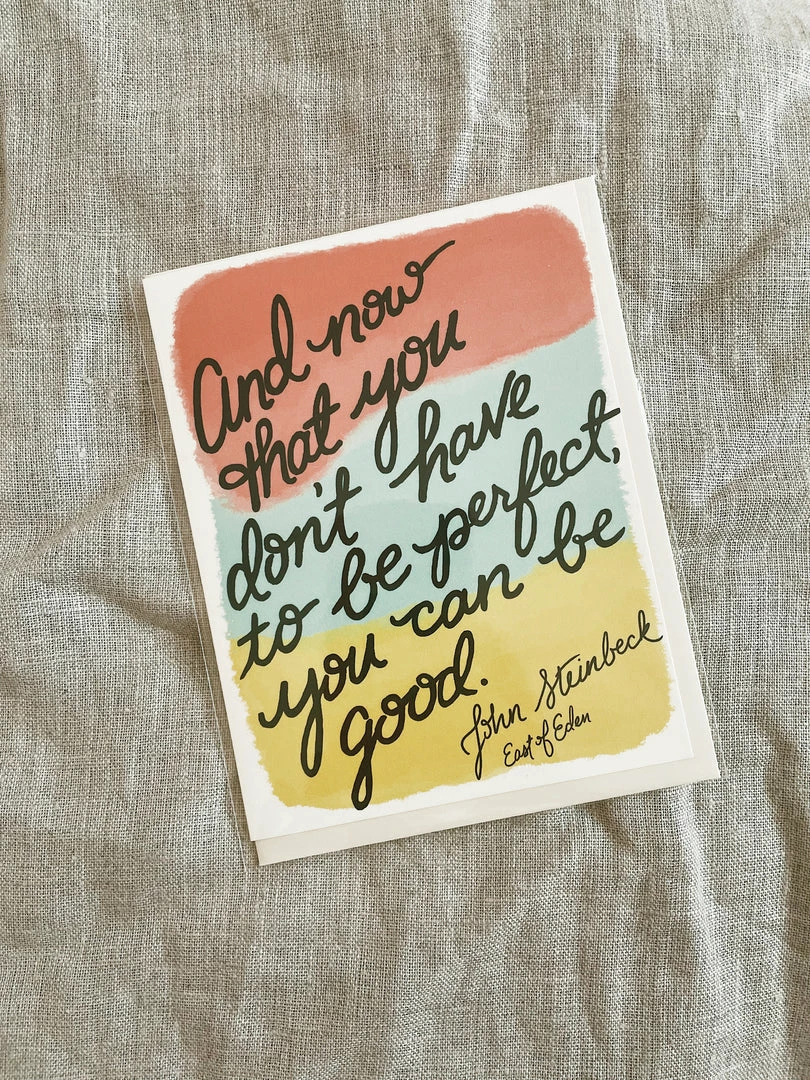 And now
that you
don't have
to be perfect,
you can be
good.
John Steinbeck
East of Eden